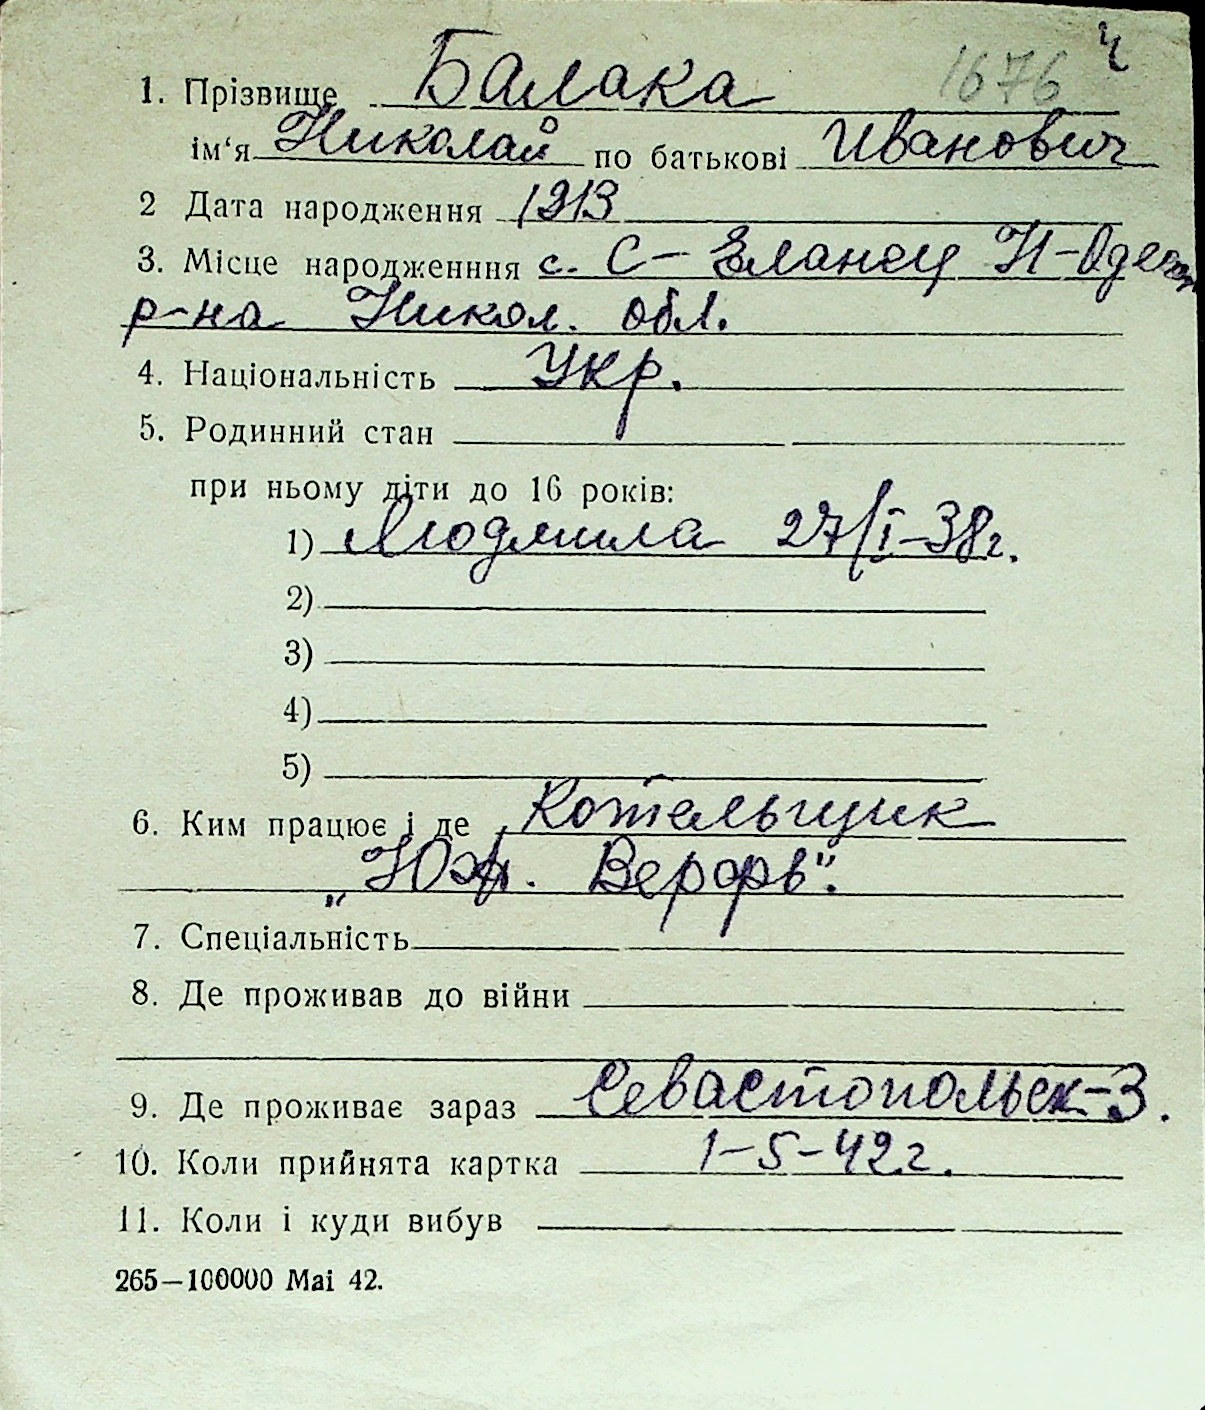 1676 ч
1. Прізвище Балака
ім‘я Николай по батькові Иванович
2 Дата народження 1913
3. Місце народженння с. С-Еланец Н-Одесск
р-на Никол. обл.
4. Національність Укр.
5. Родинний стан
при ньому діти до 16 років:
1) Людмила 27/I-38г.
2)
3)
4)
5)
6. Ким працює і де Котельщик
„Юж. Верфь".
7. Спеціальність
8. Де проживав до війни
9. Де проживає зараз Севастопольск-3.
10. Коли прийнята картка 1-5-42г.
11. Коли і куди вибув
265—100000 Mai 42.